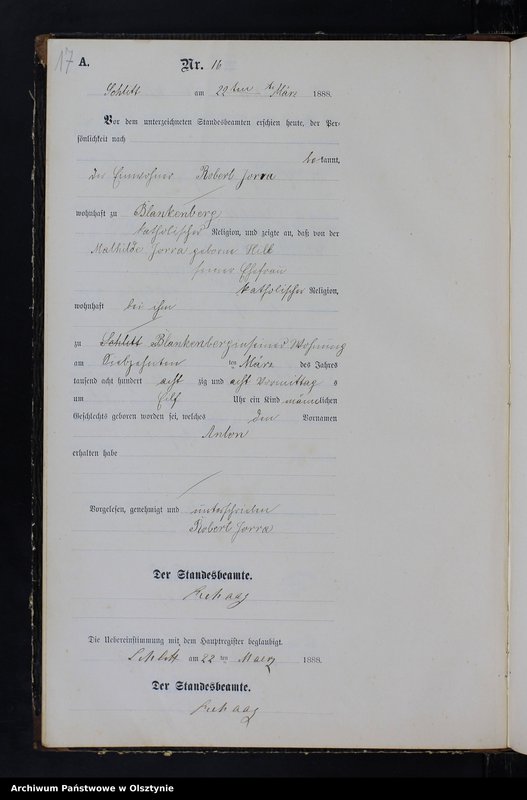 17 A. Nr. 16
Schlitt am 22ten März 1888.
Vor dem unterzeichneten Standesbeamten erschien heute, der Per-
sönlichkeit nach
bekannt,
der Einwohner Robert Jorra
wohnhaft zu Blankenberg
katholischer Religion, und zeigte an, daß von der
Mathilde Jorra geborne
seiner Ehefrau
katholischer Religion,
wohnhaft bei ihm
zu Schlitt Blankenberg in seiner Wohnung
am Siebzehnten ten März des Jahres
tausend acht hundert acht zig und acht Vormittag s
um Elf Uhr ein Kind männlichen
Geschlechts geboren worden sei, welches den Vornamen
Anton
erhalten habe
Vorgelesen, genehmigt und unterschrieben
Robert Jorra
Der Standesbeamte.
Die Uebereinstimmung mit dem Hauptregister beglaubigt.
Schlitt am 22 ten Maerz 1888.
Der Standesbeamte.
Archiwum Państwowe w Olsztynie